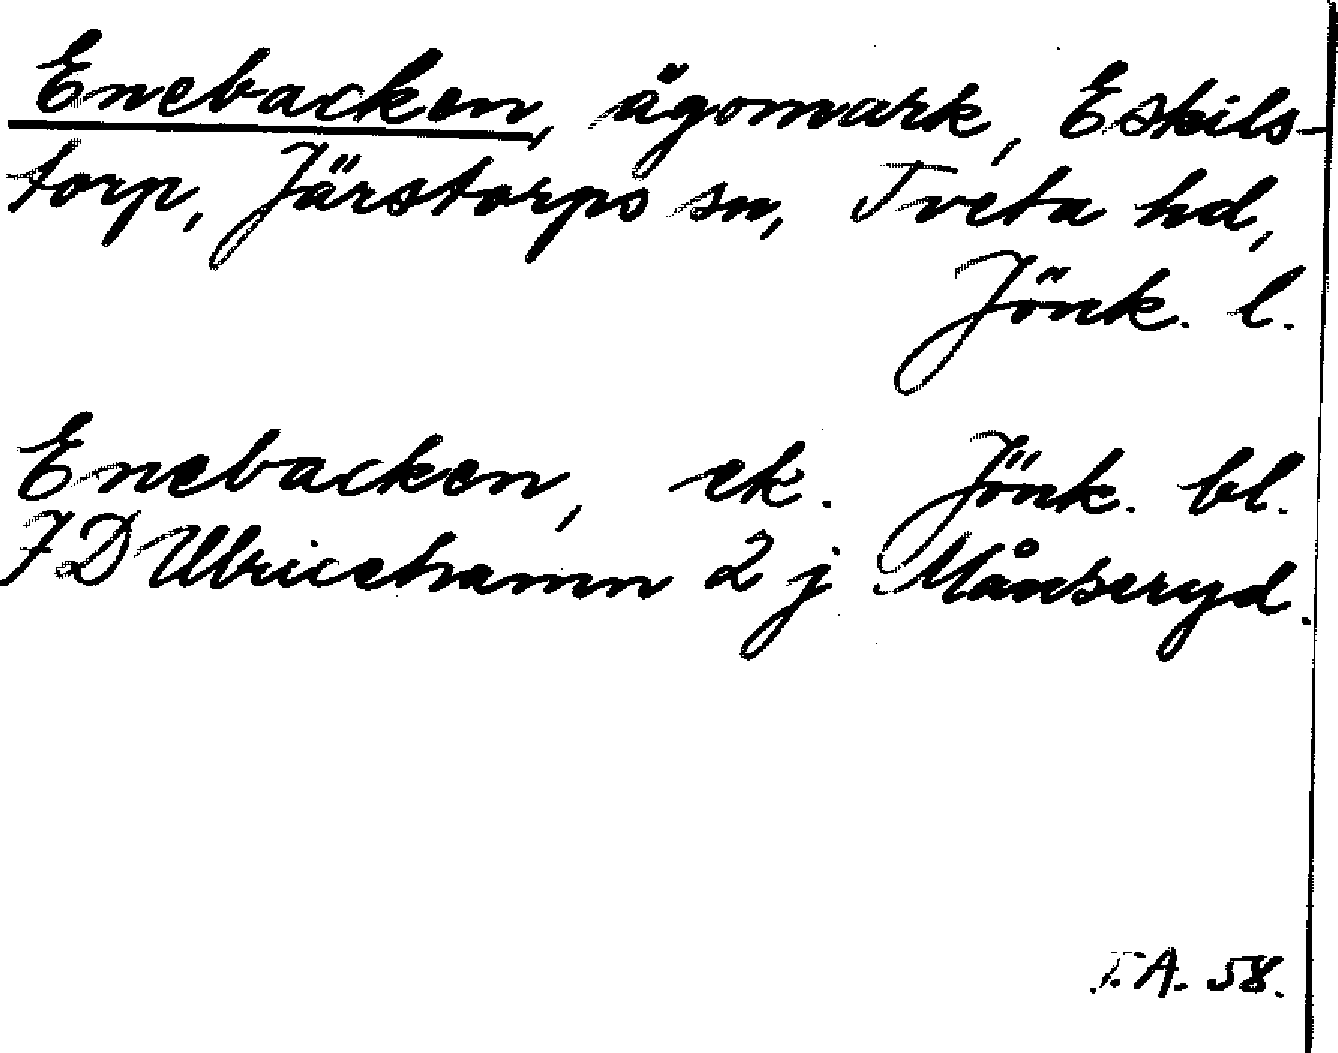 Enebacken, ägomark, Eskils-
torp, Järstorps sn, Tveta hd,
Jönk. l.
Enebacken, ek. Jönk. bl.
7D Ulricehamn 2 j Månseryd.
T.A. 58.